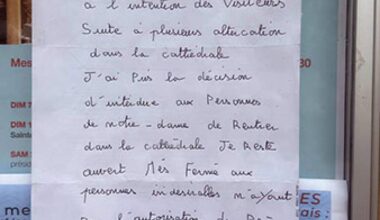 à l'intention des visiteurs
Suite à plusieurs altercation
dans la cathédrale
J'ai Pris la décision
d'interdire aux Personnes
de notre-dame de Rentier
dans la cathédrale Je Reste
ouvert Mes Fermé aux
personnes indésirables m'ayant
l'autorisation de
Mes
30
DIM 7
DIM 1
Sainte
SAM
me
ES
ais :